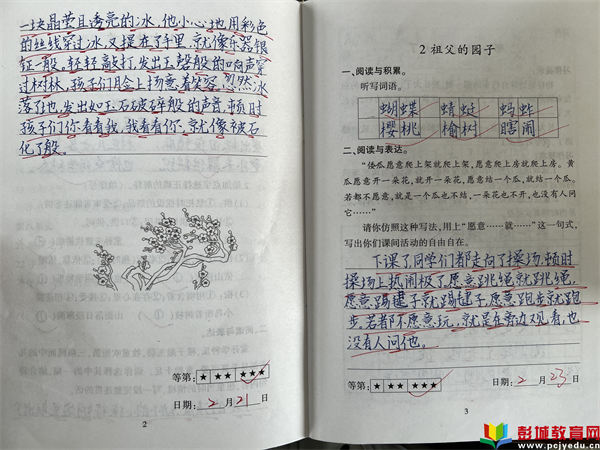 一块晶莹且透亮的冰,他小心地用彩色
的丝线穿过冰,又提在了手里,就像乐器银
钲一般。轻轻敲打,发出玉磬般的响声穿
过树林,孩子们脸上扬着笑容,忽然冰
落了地,发出如玉石破碎般的声音,顿时
孩子们你看看我,我看看你,就像被石
化了般。
等第: ★ ★★ ★★★
日期: 2 月 21 日
2
2 祖父的园子
一、阅读与积累。
听写词语。
蝴蝶 蜻蜓 蚂蚱
樱桃 榆树 瞎闹
二、阅读与表达。
“倭瓜愿意爬上架就爬上架,愿意爬上房就爬上房。黄
瓜愿意开一朵花,就开一朵花,愿意结一个瓜,就结一个瓜。
若都不愿意,就是一个瓜也不结,一朵花也不开,也没有人问
它……”
请你仿照这种写法,用上“愿意……就……”这一句式,
写出你们课间活动的自由自在。
下课了同学们都走向了操场,顿时
操场上热闹极了愿意跳绳就跳绳,
愿意踢毽子就踢毽子,愿意跑步就跑
步,若都不愿意玩,就是在旁边观看,也
没有人问他。
等第: ★ ★★ ★★★
日期: 2 月 23 日
3
彭城教育网
www.pcjyedu.com